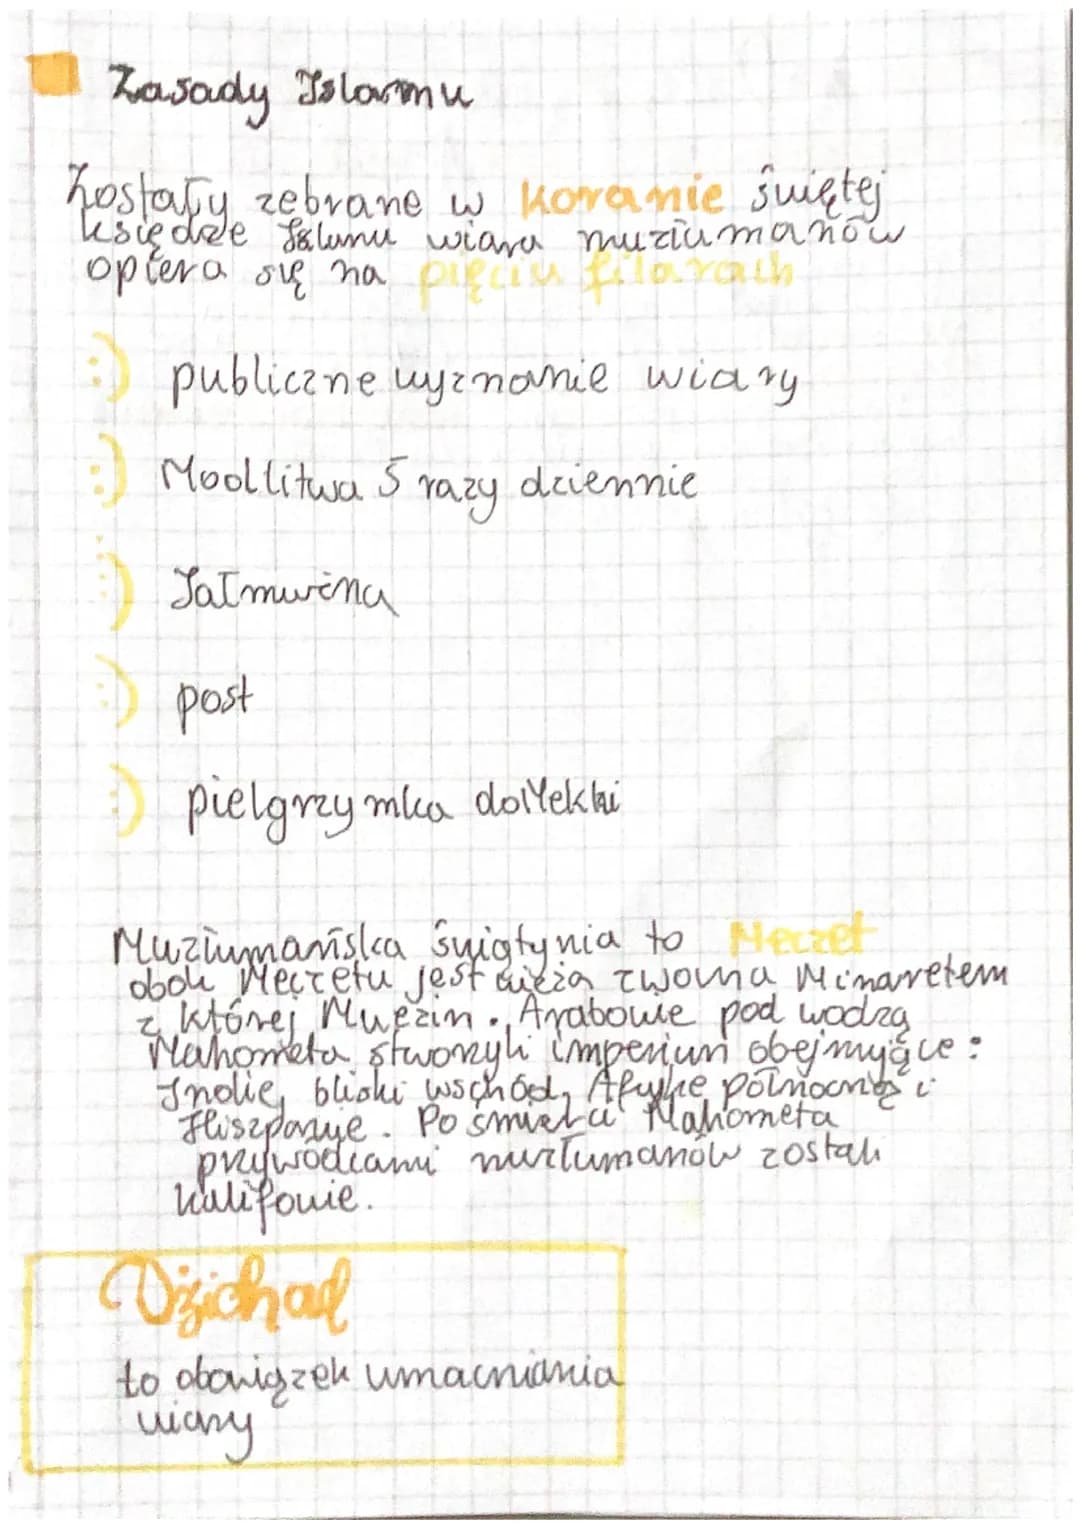 Zasady Islamu
Zostały zebrane w Koranie świętej
księdze Islamu wiara muzłumanów
opiera się na pięciu filarach
publiczne wyznanie wiary
Modlitwa 5 razy dziennie
Jałmużna
post
pielgrzymka do Mekki
Muzłumańska świątynia to Meczet
obok Meczetu jest wieża zwana Minaretem
z której Muezin. Arabowie pod wodzą
Mahometa stworzyli imperium obejmyjące:
Indie, bliski wschód, Afrykę północną i
Hiszpanię. Po śmierci Mahometa
przywódcami muzłumanów zostali
kalifowie.
Dżichad
to obowiązek umacniania
wiary